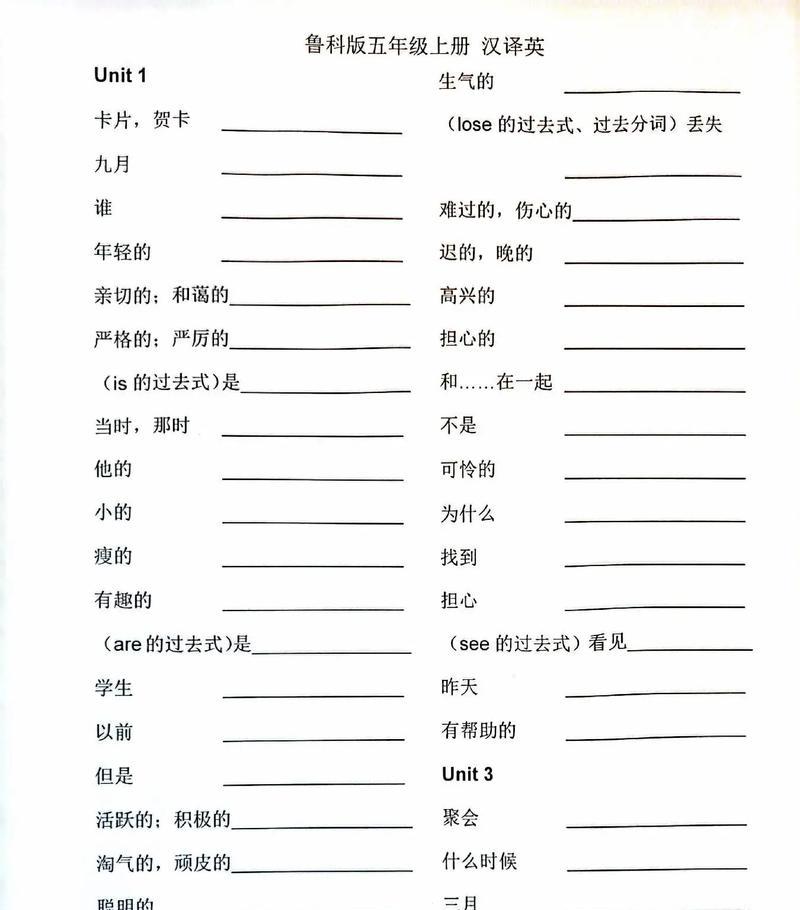 鲁科版五年级上册 汉译英
Unit 1
卡片，贺卡
九月
谁
年轻的
亲切的；和蔼的
严格的；严厉的
（is 的过去式）是
当时，那时
他的
小的
瘦的
有趣的
（are 的过去式）是
学生
以前
但是
活跃的；积极的
淘气的，顽皮的
聪明的
生气的
（lose 的过去式、过去分词）丢失
难过的，伤心的
迟的，晚的
高兴的
担心的
和……在一起
不是
可怜的
为什么
找到
担心
（see 的过去式）看见
昨天
有帮助的
Unit 3
聚会
什么时候
三月